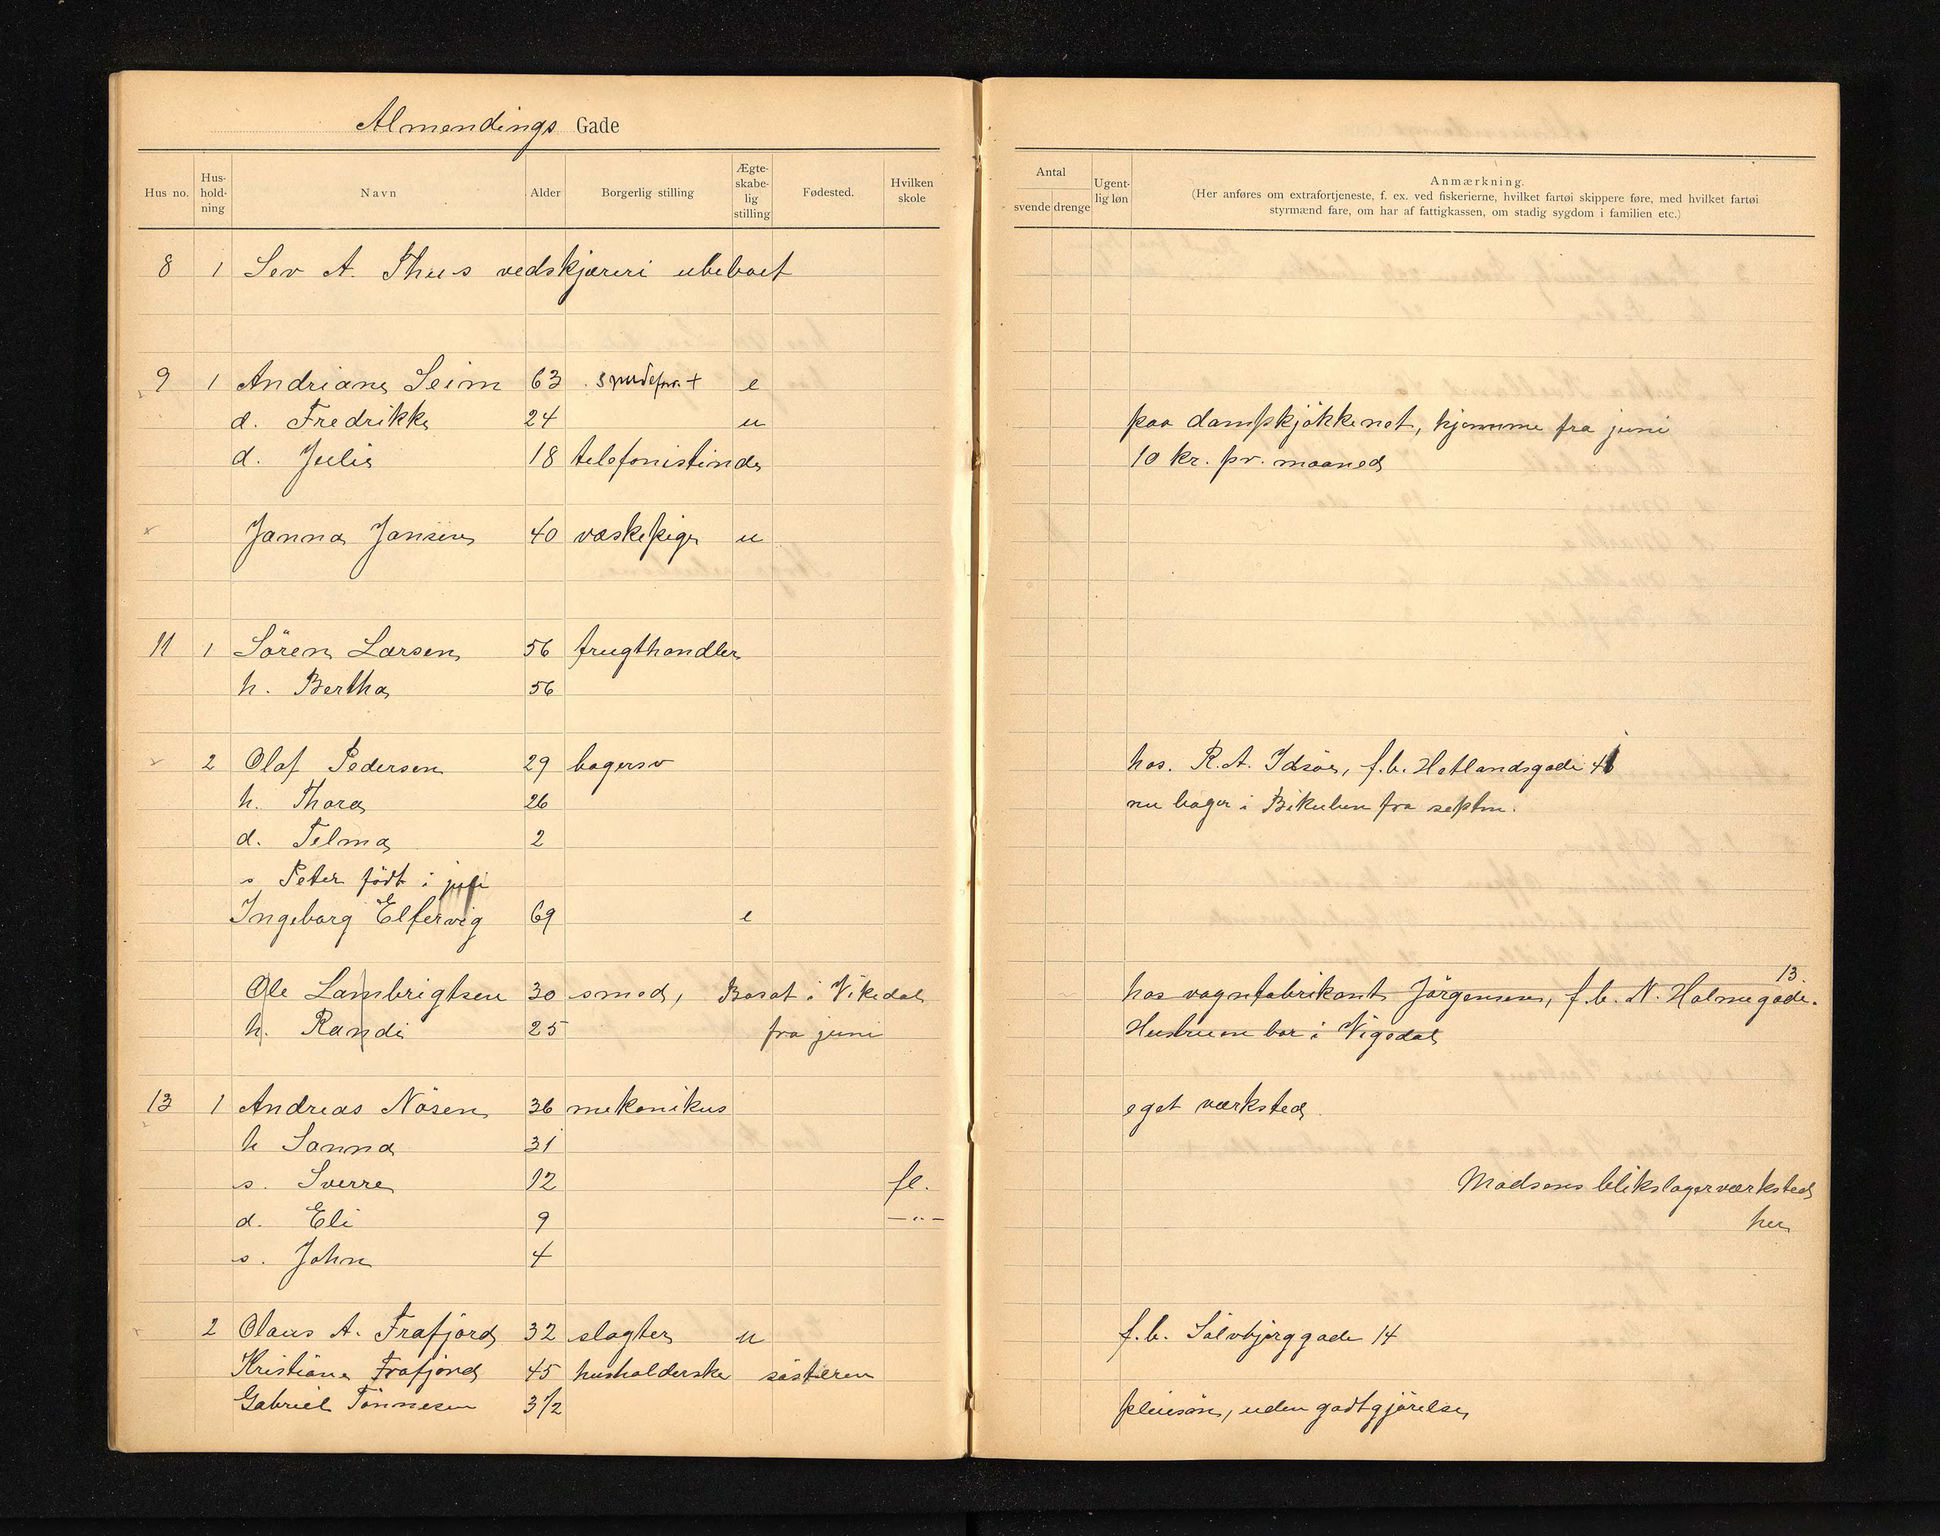 Almendings Gade
Hus no. Hus-hold-ning Navn Alder Borgerlig stilling Ægte-skabe-lig stilling Fødested. Hvilken skole
Antal svende drenge Ugent-lig løn Anmærkning.
(Her anføres om extrafortjeneste, f. ex. ved fiskerierne, hvilket fartøi skippere føre, med hvilket fartøi
styrmænd fare, om har af fattigkassen, om stadig sygdom i familien etc.)
8 1 Sev A. Thus vedskjæreri ubeboet
9 1 Andriane Seim 63 e
d. Fredrikke 24 u paa dampkjøkkenet, hjemme fra juni
d. Julie 18 telefonistinde 10 kr. pr. maaned
Janna Jansen 40 vaskepige u
11 1 Sören Larsen 56 frugthandler
h. Bertha 56
2 Olaf Pedersen 29 bagersv hos. R. A. Idsöe, f.b. Hetlandsgade
h. Thora 26 nu bager i Bikuben fra septm.
d. Telma 2
s Peter födt i juli
Ingeborg Elfervig 69 e
Ole Lambrigtsen 30 smed, Bosat i Vikedal hos vognfabrikant Jörgensen, f.b. N. Holmegade 13.
h. Randi 25 fra juni Hustruen bor i Vigedal
13 1 Andreas Nösen 36 mekanikus eget værksted.
h Sanna 31
s. Sverre 12 fl. Madsens blikslagerværksted
d. Eli 9 — " — her
s. John 4
2 Olaus A. Frafjord 32 slagter u f.b. Sölvbjerggade 14
Kristiane Frafjord 45 husholderske søsteren
Gabriel Tönnesen 3 1/2 pleiesön, uden godtgjörelse